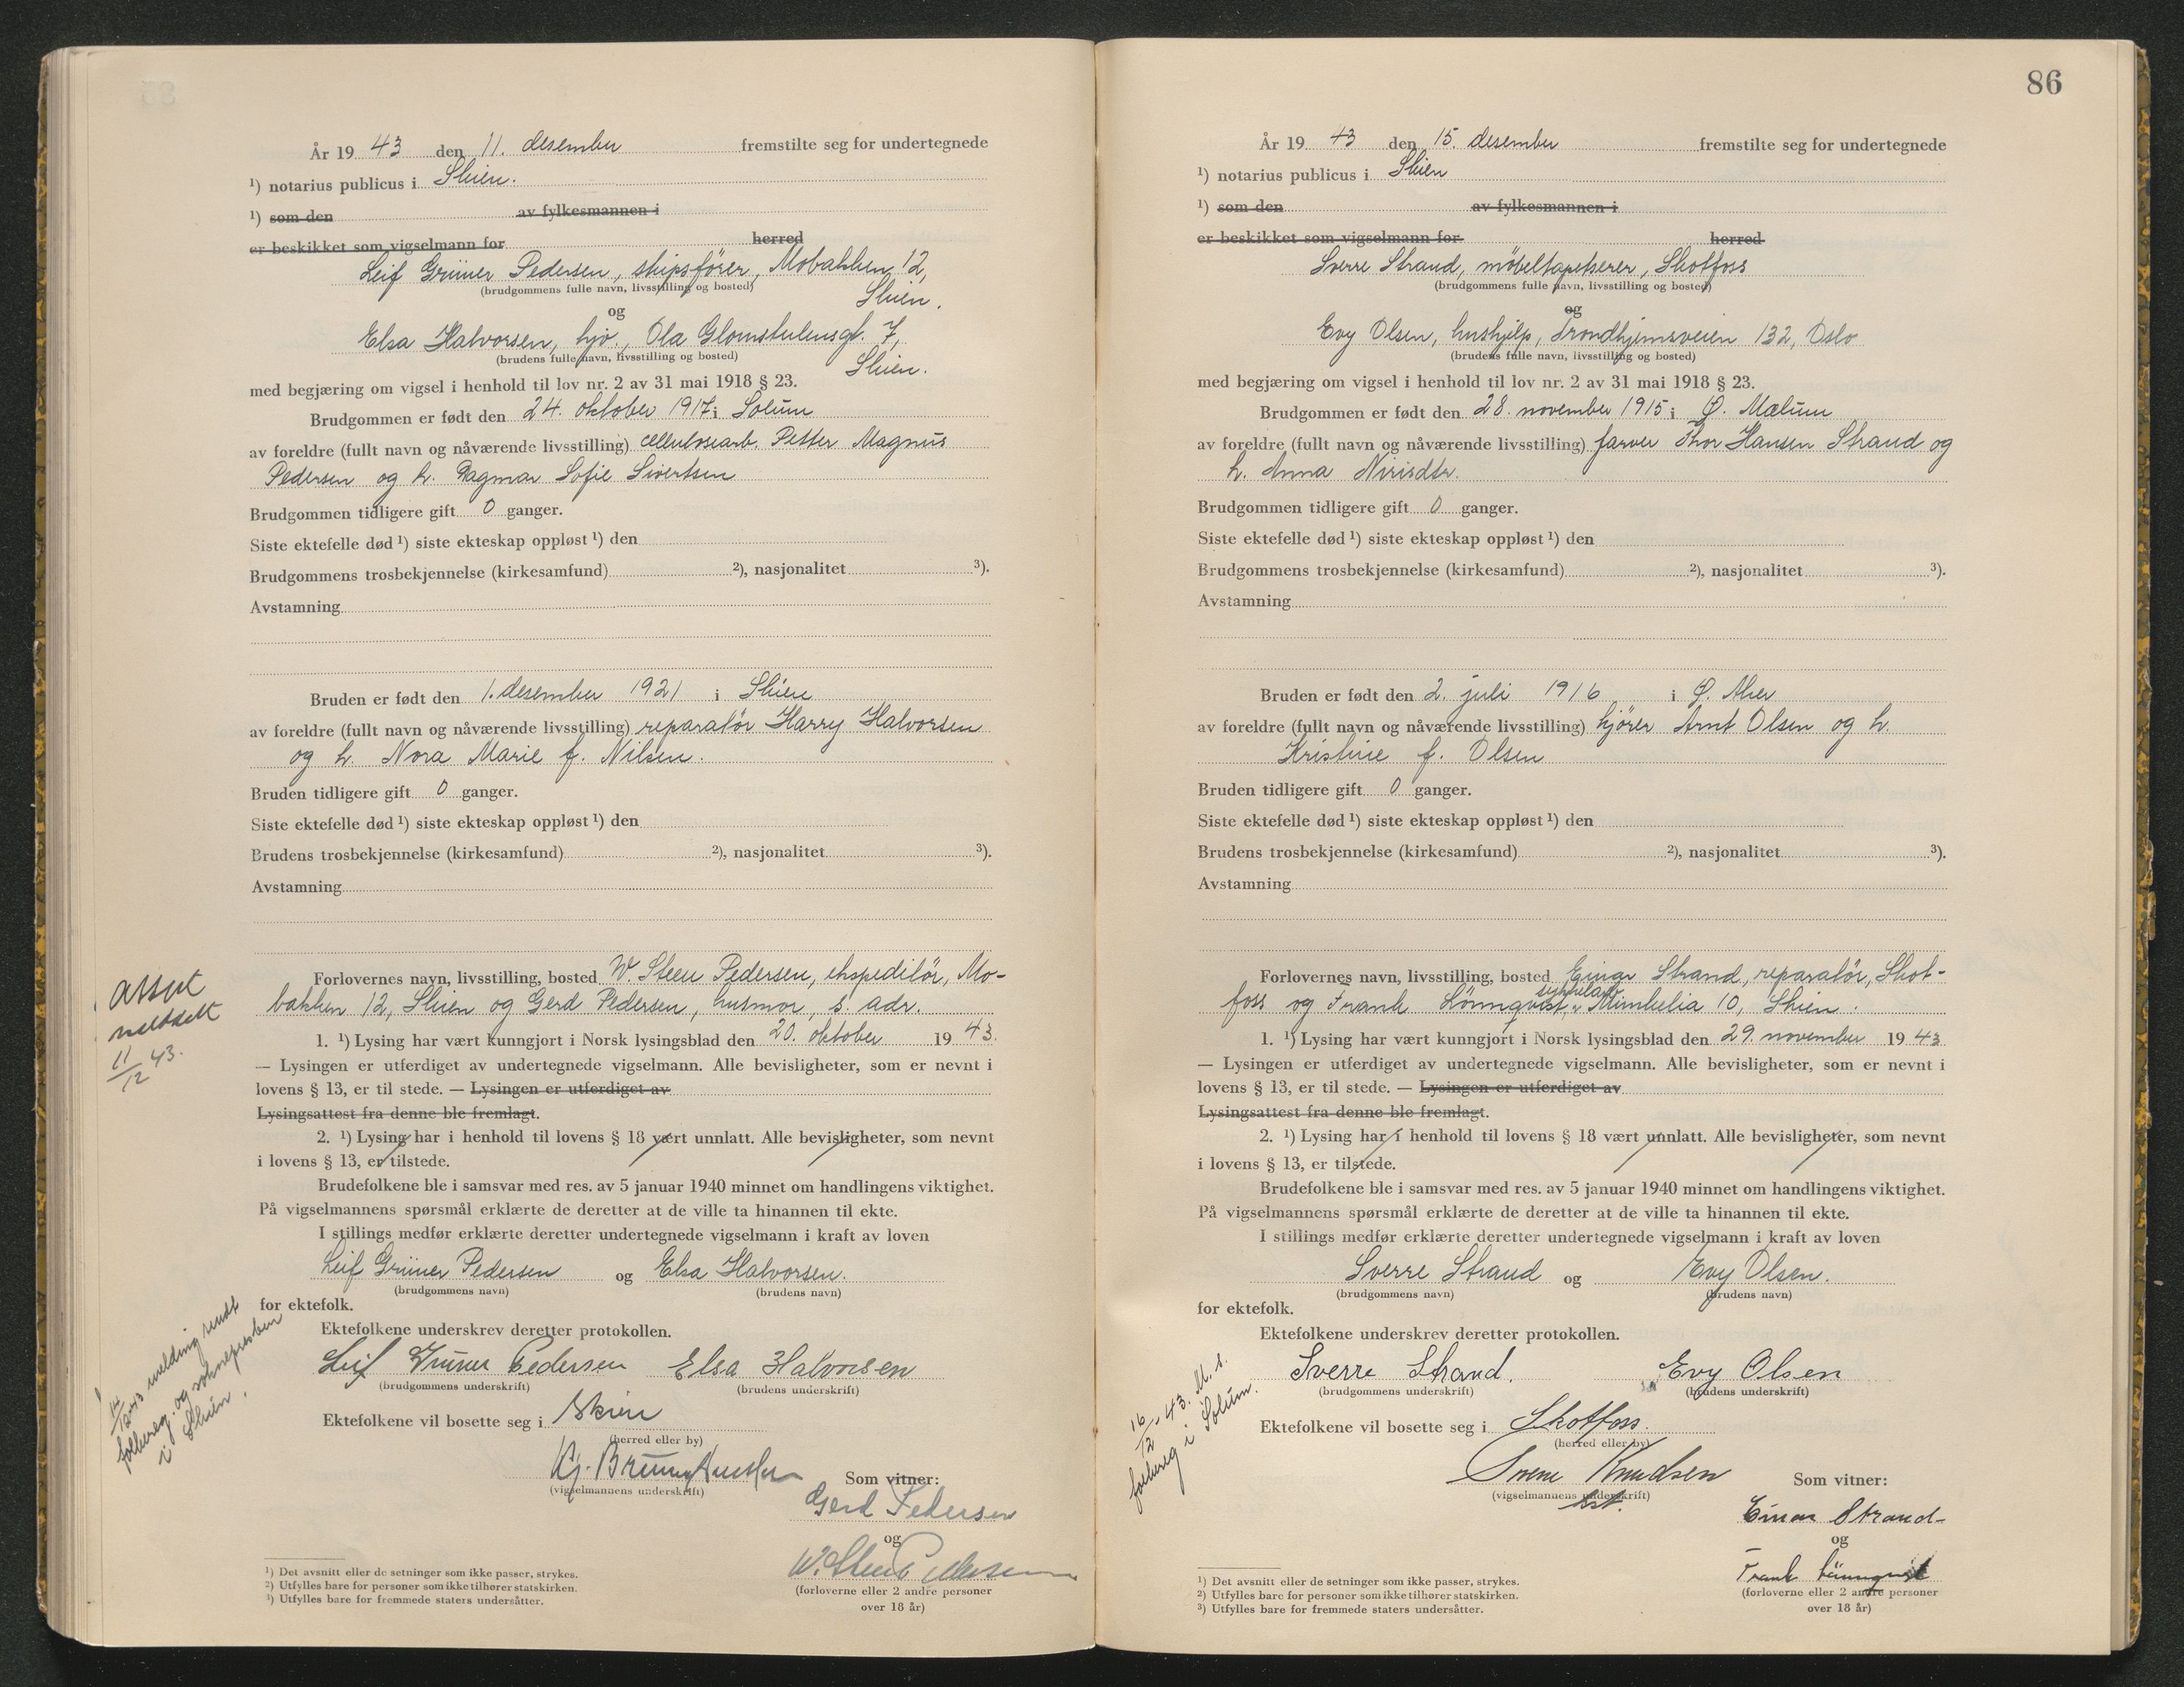 År 19 43 den 11. desember fremstilte seg for undertegnede
¹) notarius publicus i Skien.
¹) som den av fylkesmannen i
er beskikket som vigselmann for herred
Leif Grüner Pedersen, skipsfører, Mobakken 12,
(brudgommens fulle navn, livsstilling og bosted)
Skien.
og
Elsa Halvorsen, hjv., Ola Glomstulensgt. 7,
(brudens fulle navn, livsstilling og bosted)
Skien.
med begjæring om vigsel i henhold til lov nr. 2 av 31 mai 1918 § 23.
Brudgommen er født den 24. oktober 1917 i Solum
av foreldre (fullt navn og nåværende livsstilling) cellulosearb. Petter Magnus
Pedersen og h. Dagmar Sofie Sivertsen
Brudgommen tidligere gift 0 ganger.
Siste ektefelle død ¹) siste ekteskap oppløst ¹) den
Brudgommens trosbekjennelse (kirkesamfund) ²), nasjonalitet ³).
Avstamning
Bruden er født den 1. desember 1921 i Skien
av foreldre (fullt navn og nåværende livsstilling) reparatör Harry Halvorsen
og h. Nora Marie f. Nilsen.
Bruden tidligere gift 0 ganger.
Siste ektefelle død ¹) siste ekteskap oppløst ¹) den
Brudens trosbekjennelse (kirkesamfund) ²), nasjonalitet ³).
Avstamning
Forlovernes navn, livsstilling, bosted W. Steen Pedersen, ekspeditör, Mo-
bakken 12, Skien og Gerd Pedersen, husmor, s. adr.
attest
meddelt
11/12 43.
1. ¹) Lysing har vært kunngjort i Norsk lysingsblad den 20. oktober 19 43.
— Lysingen er utferdiget av undertegnede vigselmann. Alle bevisligheter, som er nevnt i
lovens § 13, er til stede. — Lysingen er utferdiget av
Lysingsattest fra denne ble fremlagt.
2. ¹) Lysing har i henhold til lovens § 18 vært unnlatt. Alle bevisligheter, som nevnt
i lovens § 13, er tilstede.
Brudefolkene ble i samsvar med res. av 5 januar 1940 minnet om handlingens viktighet.
På vigselmannens spørsmål erklærte de deretter at de ville ta hinannen til ekte.
I stillings medfør erklærte deretter undertegnede vigselmann i kraft av loven
Leif Grüner Pedersen og Elsa Halvorsen.
(brudgommens navn) (brudens navn)
for ektefolk.
Ektefolkene underskrev deretter protokollen.
Leif Grüner Pedersen Elsa Halvorsen
(brudgommens underskrift) (brudens underskrift)
12/43 melding sendt
folkereg. og soknepresten
i Skien.
Ektefolkene vil bosette seg i Skien
(herred eller by)
(vigselmannens underskrift)
Som vitner:
Gerd Pedersen
og
W. Steen Pedersen
(forloverne eller 2 andre personer
over 18 år)
¹) Det avsnitt eller de setninger som ikke passer, strykes.
²) Utfylles bare for personer som ikke tilhører statskirken.
³) Utfylles bare for fremmede staters undersåtter.
86
År 19 43 den 15. desember fremstilte seg for undertegnede
¹) notarius publicus i Skien
¹) som den av fylkesmannen i
er beskikket som vigselmann for herred
Sverre Strand, möbeltapetserer, Skotfoss
(brudgommens fulle navn, livsstilling og bosted)
og
Evy Olsen, hushjelp, Trondhjemsveien 132, Oslo
(brudens fulle navn, livsstilling og bosted)
med begjæring om vigsel i henhold til lov nr. 2 av 31 mai 1918 § 23.
Brudgommen er født den 28. november 1915 i Ø. Mælum
av foreldre (fullt navn og nåværende livsstilling) farver Thor Hansen Strand og
h. Anna Nirisdtr.
Brudgommen tidligere gift 0 ganger.
Siste ektefelle død ¹) siste ekteskap oppløst ¹) den
Brudgommens trosbekjennelse (kirkesamfund) ²), nasjonalitet ³).
Avstamning
Bruden er født den 2. juli 1916 i Ø. Aker
av foreldre (fullt navn og nåværende livsstilling) kjörer Arnt Olsen og h.
Kristine f. Olsen
Bruden tidligere gift 0 ganger.
Siste ektefelle død ¹) siste ekteskap oppløst ¹) den
Brudens trosbekjennelse (kirkesamfund) ²), nasjonalitet ³).
Avstamning
Forlovernes navn, livsstilling, bosted Einar Strand, reparatör, Skot-
foss og Frank Lönnqvist, Mimkelia 10, Skien.
1. ¹) Lysing har vært kunngjort i Norsk lysingsblad den 29. november 19 43
— Lysingen er utferdiget av undertegnede vigselmann. Alle bevisligheter, som er nevnt i
lovens § 13, er til stede. — Lysingen er utferdiget av
Lysingsattest fra denne ble fremlagt.
2. ¹) Lysing har i henhold til lovens § 18 vært unnlatt. Alle bevisligheter, som nevnt
i lovens § 13, er tilstede.
Brudefolkene ble i samsvar med res. av 5 januar 1940 minnet om handlingens viktighet.
På vigselmannens spørsmål erklærte de deretter at de ville ta hinannen til ekte.
I stillings medfør erklærte deretter undertegnede vigselmann i kraft av loven
Sverre Strand og Evy Olsen.
(brudgommens navn) (brudens navn)
for ektefolk.
Ektefolkene underskrev deretter protokollen.
Sverre Strand. Evy Olsen
(brudgommens underskrift) (brudens underskrift)
16/12 43. M. s.
folkereg i Solum.
Ektefolkene vil bosette seg i Skotfoss.
(herred eller by)
Svem Knudsen
(vigselmannens underskrift)
Som vitner:
Einar Strand
og
Frank Lönnqvist
(forloverne eller 2 andre personer
over 18 år)
¹) Det avsnitt eller de setninger som ikke passer, strykes.
²) Utfylles bare for personer som ikke tilhører statskirken.
³) Utfylles bare for fremmede staters undersåtter.